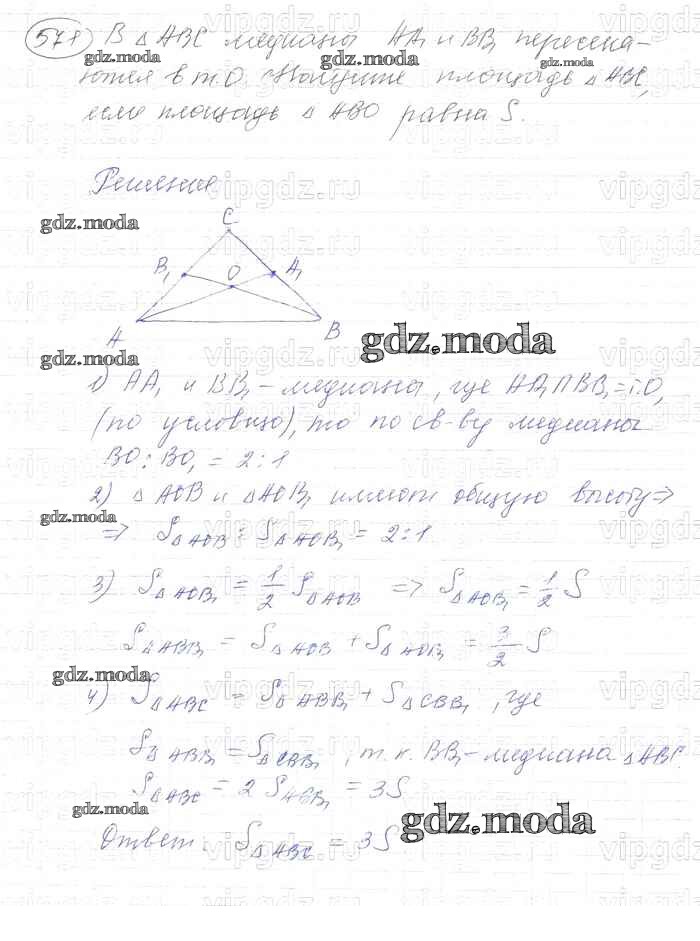 578 В △ ABC медианы AA₁ и BB₁ пересека-
ются в т. O. Найдите площадь △ ABC,
если площадь △ ABO равна S.
Решение
C
B₁ O A₁
A B
1) AA₁ и BB₁ - медианы, где AA₁∩BB₁ = т.O,
(по условию), то по св-ву медианы
BO : BO₁ = 2 : 1
2) △ AOB и △AOB₁ имеют общую высоту ⇒
⇒ S△AOB : S△AOB₁ = 2 : 1
3) S△AOB₁ = 1/2 S△AOB ⇒ S△AOB₁ = 1/2 S
S△ABB₁ = S△AOB + S△AOB₁ = 3/2 S
4) S△ABC = S△ABB₁ + S△CBB₁, где
S△ABB₁ = S△CBB₁, т.к. BB₁ - медиана △ABC.
S△ABC = 2 S△ABB₁ = 3S
Ответ: S△ABC = 3S
gdz.moda
gdz.moda
gdz.moda
gdz.moda
gdz.moda
gdz.moda
gdz.moda
gdz.moda
gdz.moda
gdz.moda
vipgdz.ru